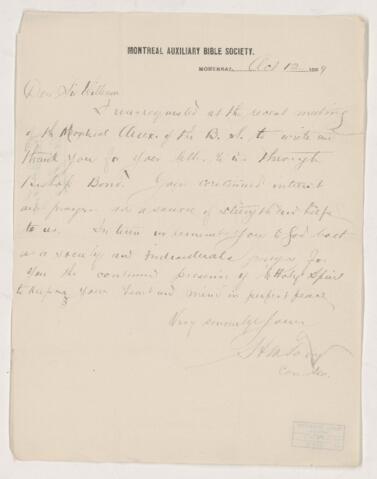 MONTREAL AUXILIARY BIBLE SOCIETY.
MONTREAL, Oct 12 1889
Dear Sir William
I was requested at the recent meeting
of the Montreal Aux. of the B. S. to write and
thank you for your letter to us through
Bishop Bond. Your continued interest
and prayers are a source of strength and help
to us. In turn we remember you to God both
as a society and individuals prayer for
you the continued presence of Holy Spirit
to keeping your heart and mind in perfect peace
Very sincerely yours